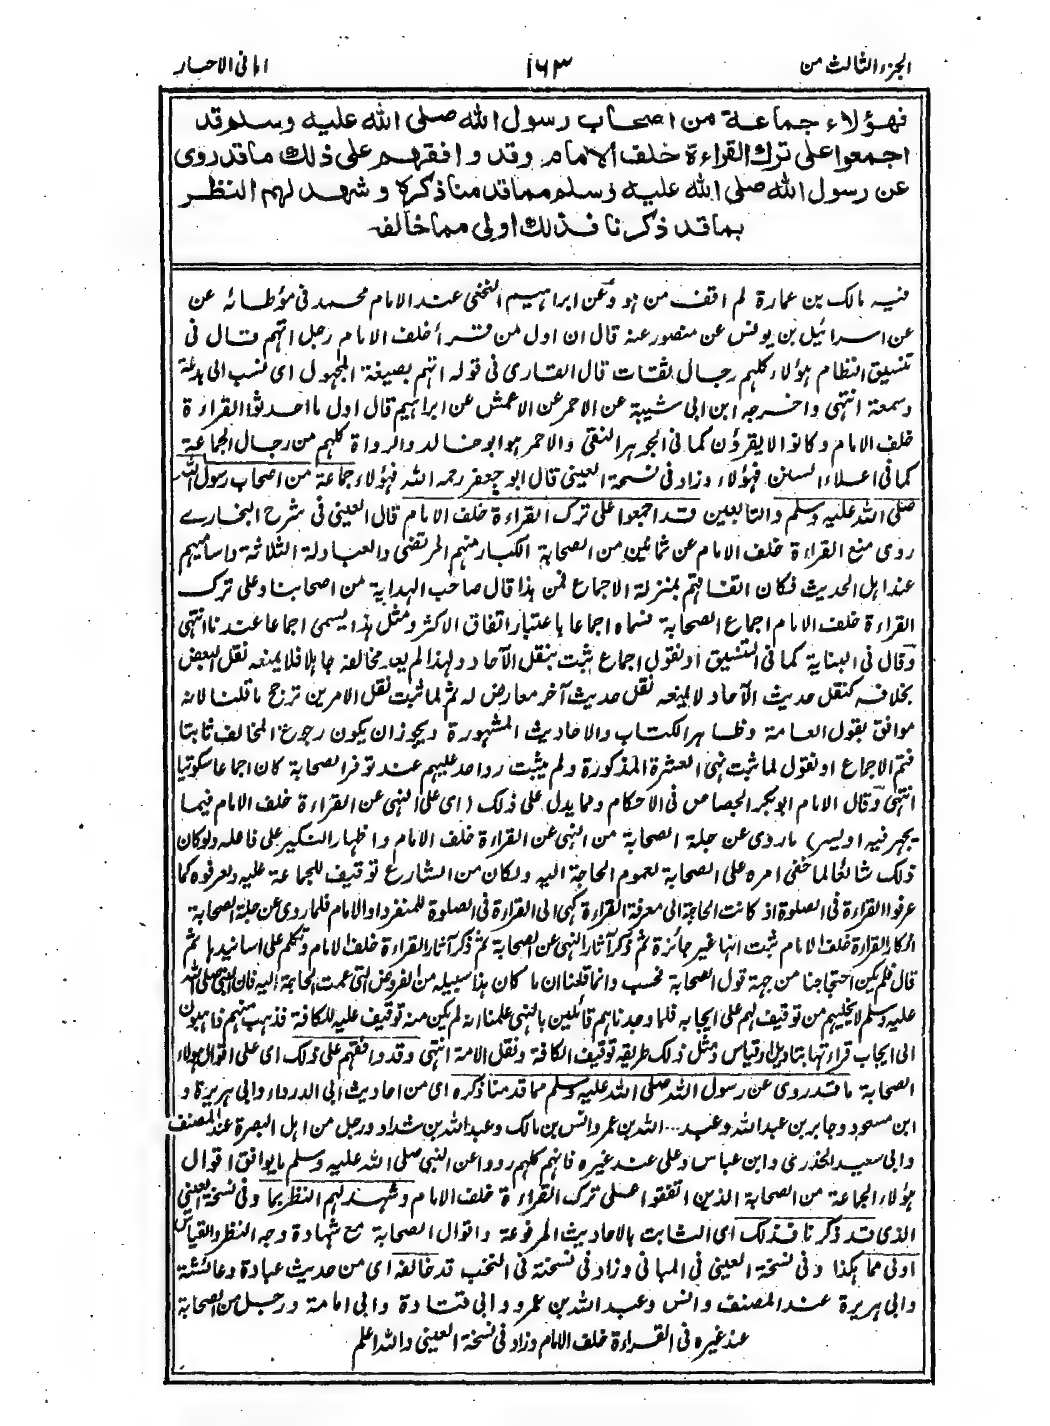 الجزء الثالث من
١٦٣
امانی الاحبار
فهؤلاء جماعة من اصحاب رسول الله صلى الله عليه وسلم قد
اجمعوا على ترك القراءة خلف الامام وقد وافقهم على ذلك ماقد روى
عن رسول الله صلى الله عليه وسلم مماقد مناذكره وشهد لهم النظر
بماقد ذكرنا فذلك اولى مماخالفه
فيه مالك بن عمارة لم اقف من هو وعن ابراهيم النخعى عند الامام محمد فى مؤطائه عن
عن اسرائيل بن يونس عن منصور عنه قال ان اول من قرأ خلف الامام رجل اتهم قال فى
تنسيق النظام هؤلاء كلهم رجال ثقات قال القارى فى قوله اتهم بصيغة المجهول اى نسب الى بدعة
وسمعة انتهى واخرجه ابن ابى شيبة عن الاحمر عن الاعمش عن ابراهيم قال اول ما احدثوا القراءة
خلف الامام وكانوا لا يقرؤن كما فى الجوهر النقى والاحمر هو ابو خالد والرواة كلهم من رجال الجماعة
كما فى اعلاء السنن فهؤلاء وزاد فى نسخة العينى قال ابو جعفر رحمه الله فهؤلاء جماعة من اصحاب رسول الله
صلى الله عليه وسلم والتابعين قد اجمعوا على ترك القراءة خلف الامام قال العينى فى شرح البخارى
روى منع القراءة خلف الامام عن ثمانين من الصحابة الكبار منهم المرتضى والعبادلة الثلاثة واساميهم
عند اهل الحديث فكان اتفاقهم بمنزلة الاجماع فمن هذا قال صاحب الهداية من اصحابنا وعلى ترك
القراءة خلف الامام اجماع الصحابة فسماه اجماعا باعتبار اتفاق الاكثر ومثل هذا يسمى اجماعا عندنا انتهى
وقال فى البناية كما فى التنسيق او نقول اجماع ثبت بنقل الآحاد ولهذا لم يعد مخالفه جاهلا فلا يمنعه نقل البعض
بخلافه كنقل حديث الآحاد لا يمنعه نقل حديث آخر معارض له ثم لما ثبت نقل الامرين ترجح ما قلنا لانه
موافق بقول العامة وظاهر الكتاب والاحاديث المشهورة ويجوز ان يكون رجوع المخالف ثابتا
فتم الاجماع او نقول لما ثبت نهى العشرة المذكورة ولم يثبت رد احد عليهم عند توفر الصحابة كان اجماعا سكوتيا
انتهى وقال الامام ابو بكر الجصاص فى الاحكام ومما يدل على ذلك (اى على النهى عن القراءة خلف الامام فيما
يجهر فيه او يسر) ما روى عن جلة الصحابة من النهى عن القراءة خلف الامام واظهار النكير على فاعله ولو كان
ذلك شائعا لما خفى امره على الصحابة لعموم الحاجة اليه ولكان من الشارع توقيف للجماعة عليه ولعرفوه كما
عرفوا القراءة فى الصلوة اذ كانت الحاجة الى معرفة القراءة كهى الى القراءة فى الصلوة للمنفرد او الامام فلما روى عن جلة الصحابة
انكار القراءة خلف الامام ثبت انها غير جائزة ثم ذكر آثار النهى عن الصحابة ثم ذكر آثار القراءة خلف الامام وتكلم على اسانيدها ثم
قال فلم يكن احتجاجنا من جهة قول الصحابة فحسب وانما قلنا ان ما كان هذا سبيله من الفروض التى عمت الحاجة اليه فان النبى صلى الله
عليه وسلم لا يخليهم من توقيف لهم على ايجابه فلما وجدناهم قائلين بالنهى علمنا انه لم يكن منه توقيف عليه للكافة فذهب منهم ذاهبون
الى ايجاب قراءتها بتاويل او قياس ومثل ذلك طريقه توقيف الكافة ونقل الامة انتهى وقد وافقهم على ذلك اى على اقوال هؤلاء
الصحابة ما قد روى عن رسول الله صلى الله عليه وسلم مما قد منا ذكره اى من احاديث ابى الدرداء وابى هريرة و
ابن مسعود وجابر بن عبد الله وعبد... الله بن عمر وانس بن مالك وعبد الله بن شداد ورجل من اهل البصرة عند المصنف
وابى سعيد الخدرى وابن عباس وعلى عند غيره فانهم كلهم رووا عن النبى صلى الله عليه وسلم ما يوافق اقوال
هؤلاء الجماعة من الصحابة الذين اتفقوا على ترك القراءة خلف الامام وشهد لهم النظر بما وفى نسخة العينى
الذى قد ذكرنا فذلك اى الثابت بالاحاديث المرفوعة واقوال الصحابة مع شهادة وجه النظر والقياس
اولى مما هكذا وفى نسخة العينى فى المبانى وزاد فى نسخته فى النخب قد خالفه اى من حديث عبادة وعائشة
وابى هريرة عند المصنف وانس وعبد الله بن عمرو وابى قتادة وابى امامة ورجل من الصحابة
عند غيره فى القراءة خلف الامام وزاد فى نسخة العينى والله اعلم